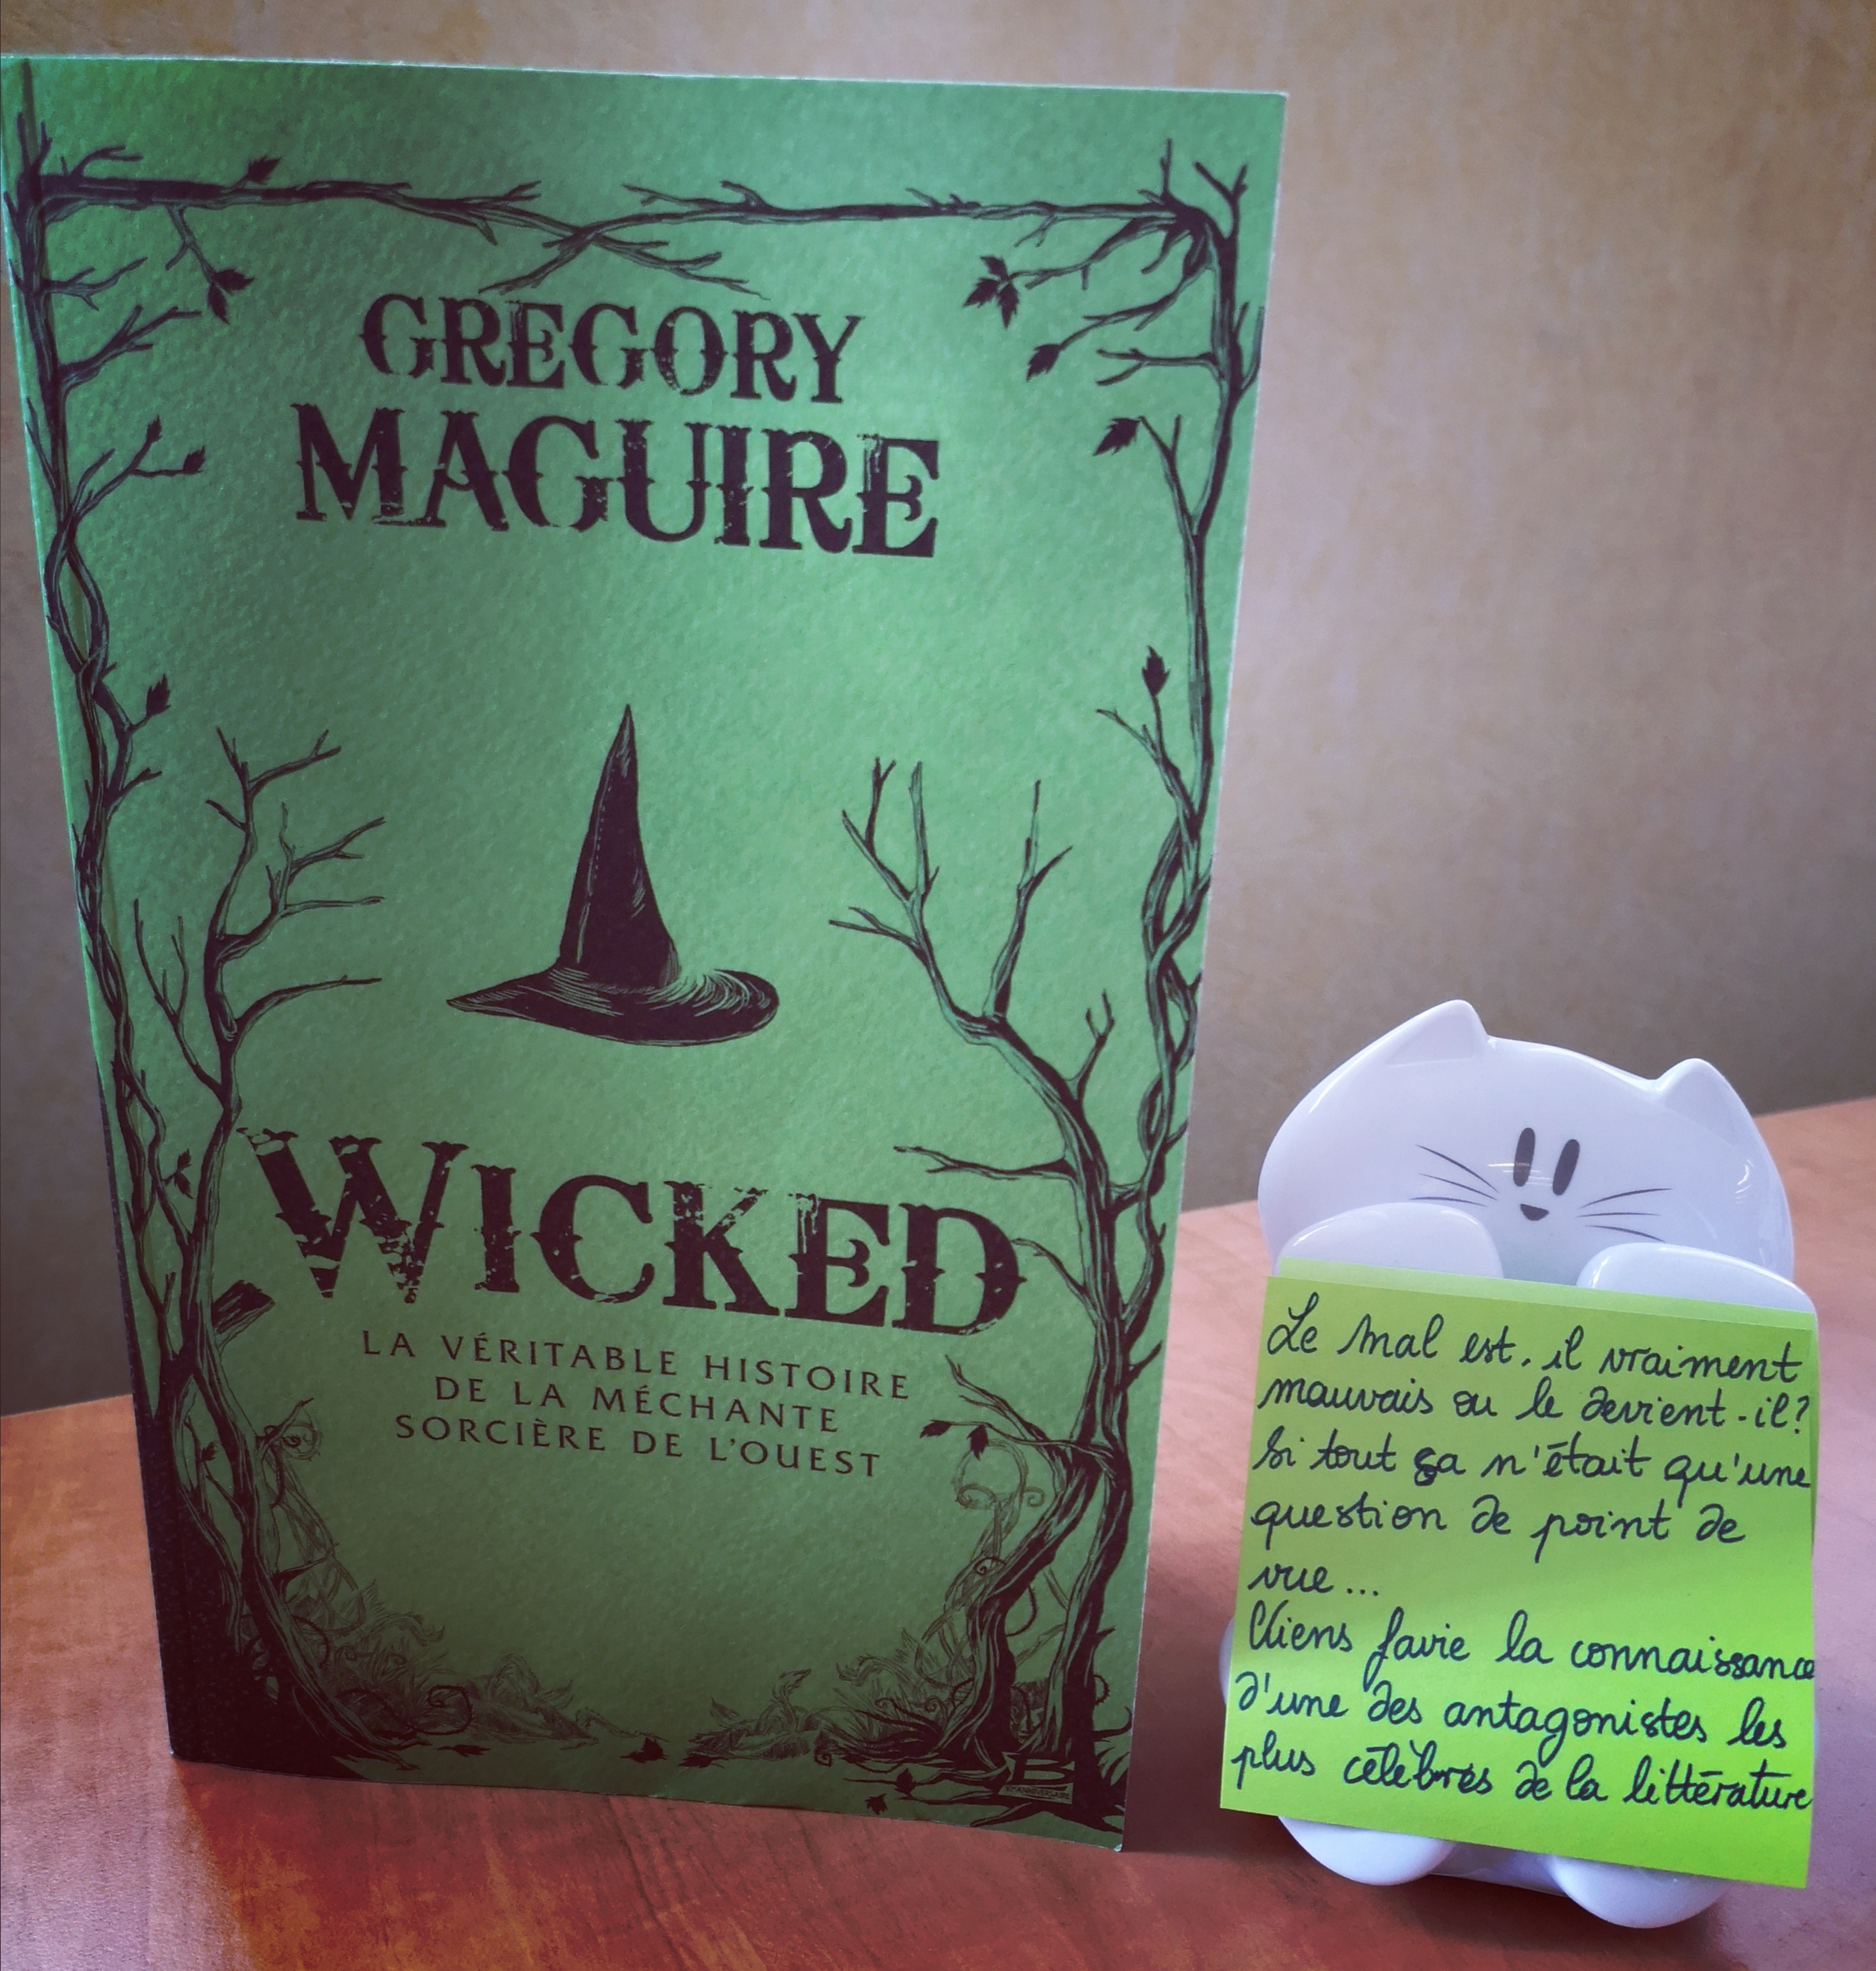 GREGORY
MAGUIRE
WICKED
LA VÉRITABLE HISTOIRE
DE LA MÉCHANTE
SORCIÈRE DE L'OUEST
B
ANNIVERSAIRE
Le mal est, il vraiment
mauvais ou le devient-il?
Si tout ça n'était qu'une
question de point de
vue...
Viens favie la connaissance
d'une des antagonistes les
plus célèbres de la littérature